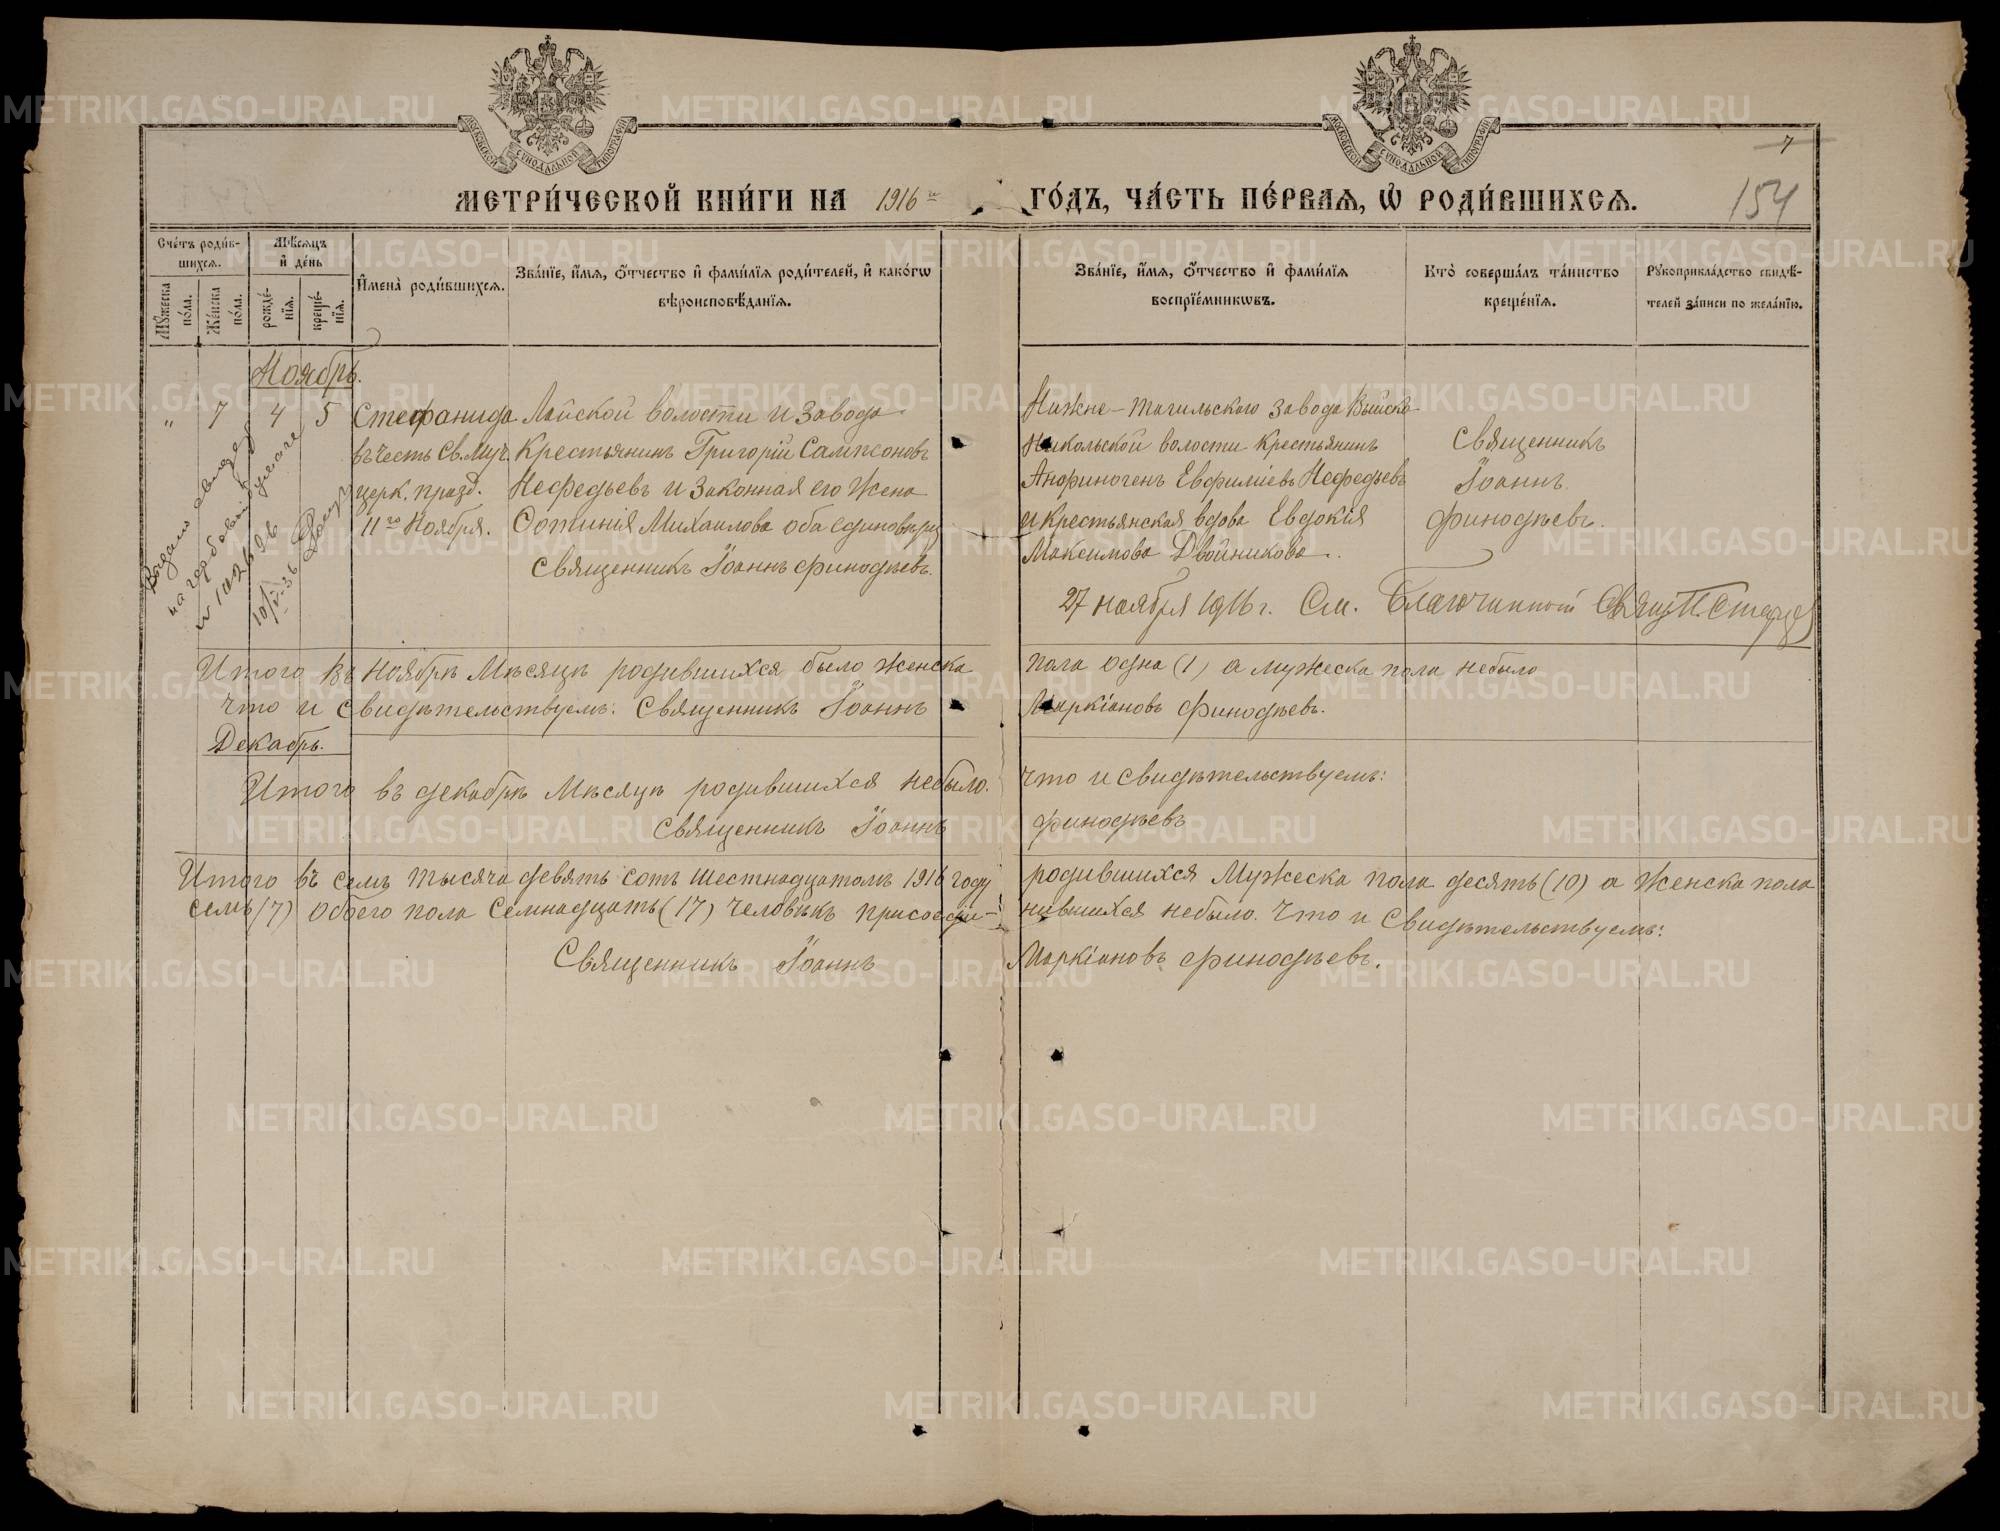 МОСКОВСКОЙ СУНОДАЛЬНОЙ ТИПОГРАФІИ
МОСКОВСКОЙ СУНОДАЛЬНОЙ ТИПОГРАФІИ
7
МЕТРИ́ЧЕСКОЙ КНИ́ГИ НА 1916 ГО́ДЪ, ЧА́СТЬ ПЕ́РВАѦ, Ѡ РОДИ́ВШИХСѦ.
154
Сче́тъ роди́в-
шихсѧ.
Мѣ́сѧцъ
и҆ де́нь
Мꙋ́жеска
по́ла.
Же́нска
по́ла.
рожде́-
нїѧ.
креще́-
нїѧ.
И҆мена̀ роди́вшихсѧ.
Зва́нїе, и҆́мѧ, ѻ҆́тчество и҆ фами́лїѧ роди́телей, и҆ како́гѡ
вѣроисповѣ́данїѧ.
Зва́нїе, и҆́мѧ, ѻ҆́тчество и҆ фами́лїѧ
воспрїе́мникѡвъ.
Кто̀ соверша́лъ та́инство
креще́нїѧ.
Рꙋкоприкла́дство свидѣ́-
телей за́писи по жела́нїю.
Ноябрь.
" 7 4 5
Стефанида
въ честь Св. Муч.
церк. празд.
11го Ноября.
Лайской волости и завода
Крестьянинъ Григорій Сампсоновъ
Нефедьевъ и законная его жена
Фотинія Михаилова оба единовѣрц.
Священникъ Іоаннъ Финодѣевъ.
Нижне-Тагильскаго завода Выйско-
Никольской волости крестьянинъ
Анфиногенъ Евфиміевъ Нефедьевъ
и крестьянская вдова Евдокія
Максимова Двойникова.
Священникъ
Іоаннъ
Финодѣевъ.
Выдано свидет.
на гербовой бумаге
10/V-36
27 ноября 1916 г. См. Благочинный Свящ. П.
Итого въ Ноябрѣ Мѣсяцѣ родившихся было женска пола одна (1) а мужеска пола небыло
Что и свидѣтельствуемъ: Священникъ Іоаннъ Маркіановъ Финодѣевъ.
Декабрь.
Итого въ декабрѣ Мѣсяцѣ родившихся небыло. Что и свидѣтельствуемъ:
Священникъ Іоаннъ Финодѣевъ
Итого въ семъ тысяча девять сотъ шестнадцатомъ 1916 году родившихся Мужеска пола десять (10) а женска пола
семь (7) обоего пола семнадцать (17) человѣкъ присоеди- нившихся небыло. Что и Свидѣтельствуемъ:
Священникъ Іоаннъ Маркіановъ Финодѣевъ.
METRIKI.GASO-URAL.RU